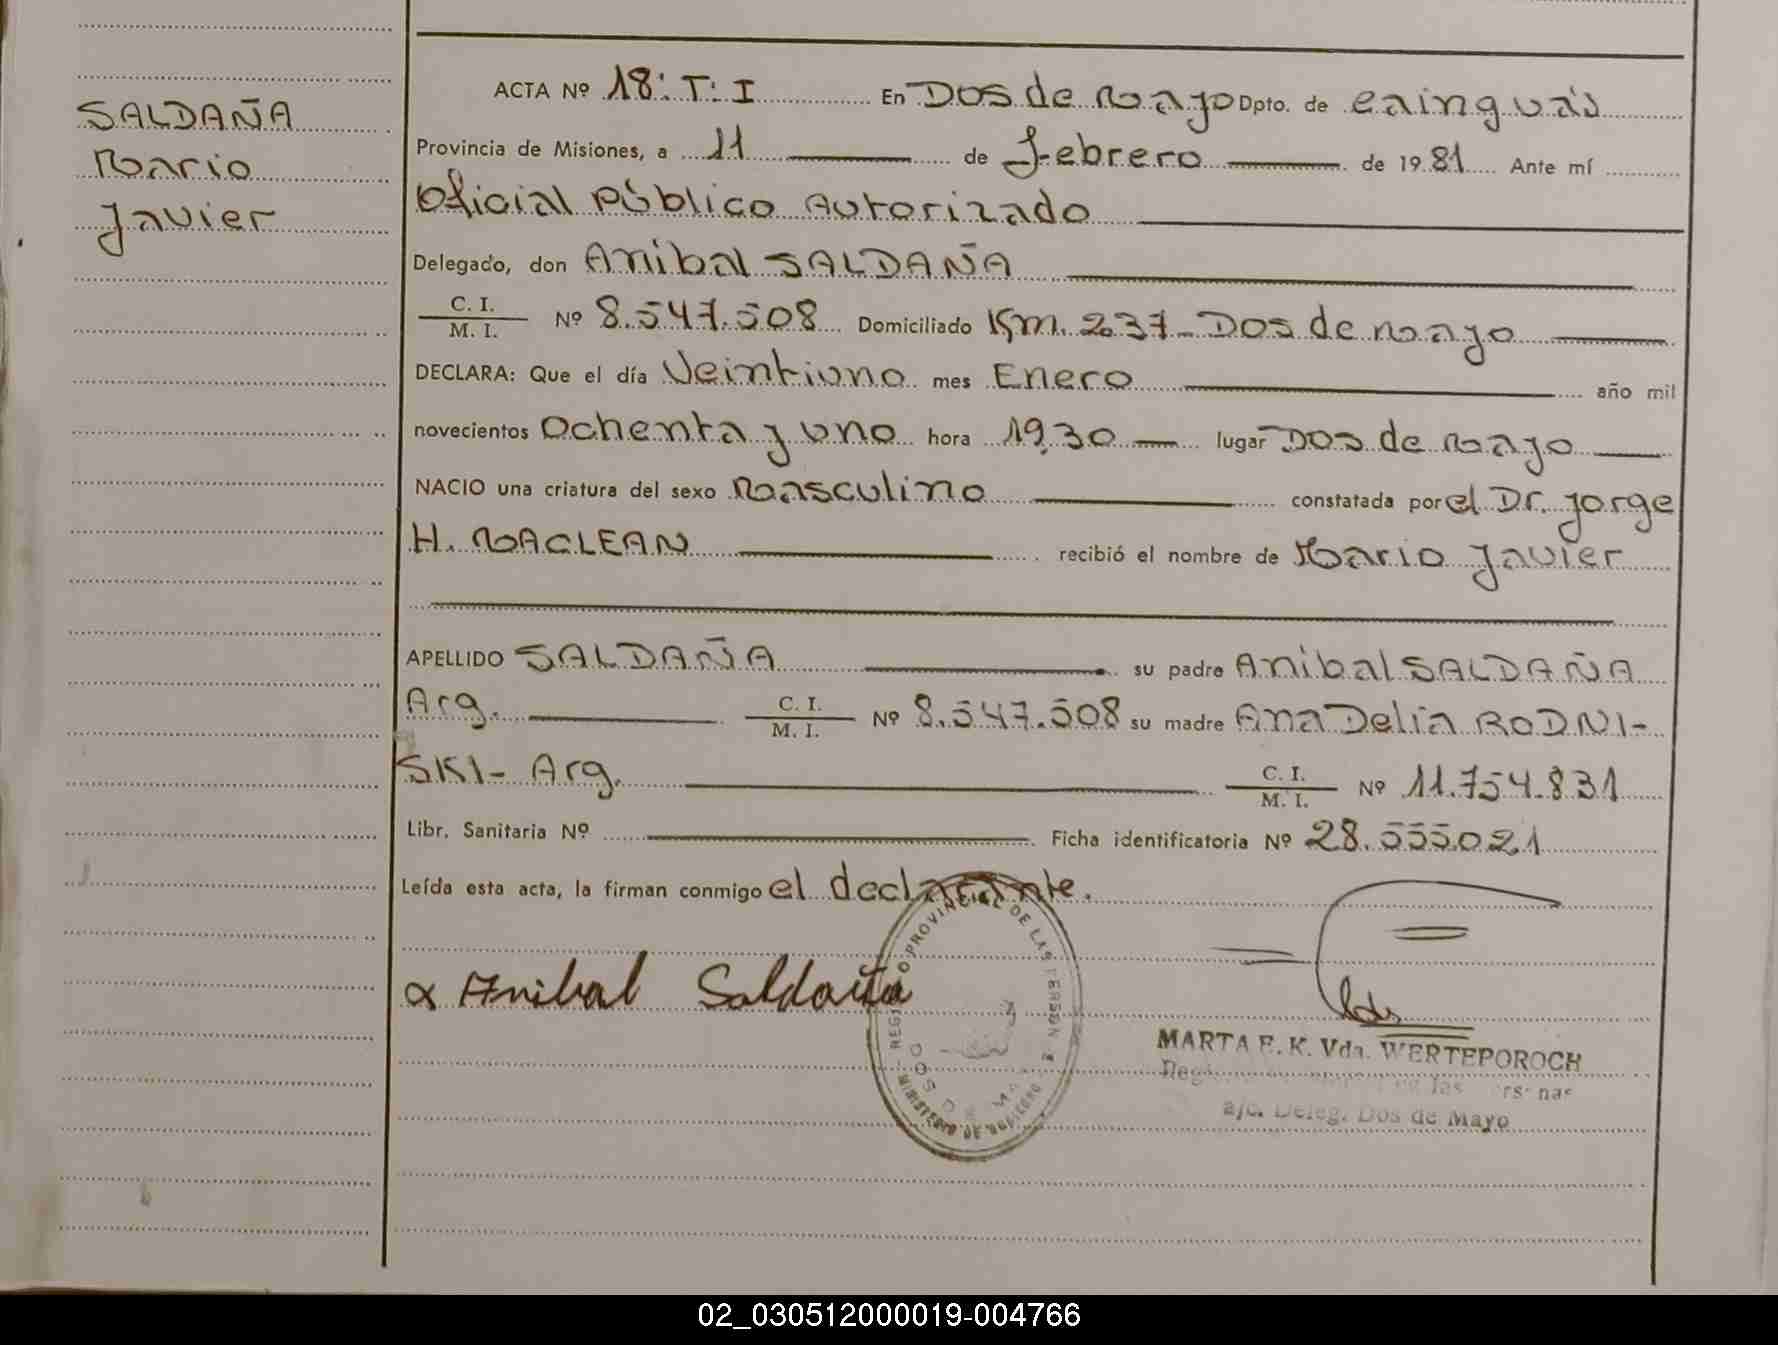 SALDAÑA
Mario
Javier
ACTA Nº 18: T: I En Dos de Mayo Dpto. de Cainguás
Provincia de Misiones, a 11 de Febrero de 1981 Ante mí
Oficial Público Autorizado
Delegado, don Anibal SALDAÑA
C. I.
M. I. Nº 8.547.508 Domiciliado Km. 237- Dos de Mayo
DECLARA: Que el día Veintiuno mes Enero año mil
novecientos Ochenta y uno hora 19,30 lugar Dos de Mayo
NACIO una criatura del sexo Masculino constatada por el Dr. Jorge
H. MACLEAN recibió el nombre de Mario Javier
APELLIDO SALDAÑA su padre Anibal SALDAÑA
Arg. C. I.
M. I. Nº 8.547.508 su madre Ana Delia RODNI-
SKI- Arg. C. I.
M. I. Nº 11.754.831
Libr. Sanitaria Nº Ficha identificatoria Nº 28.555021
Leída esta acta, la firman conmigo el declarante.
Anibal Saldaña
REGISTRO PROVINCIAL DE LAS PERSONAS
DOS DE MAYO
MINISTERIO DE GOBIERNO
MARTA E. K. Vda. WERTEPOROCH
a/c. Deleg. Dos de Mayo
02_030512000019-004766